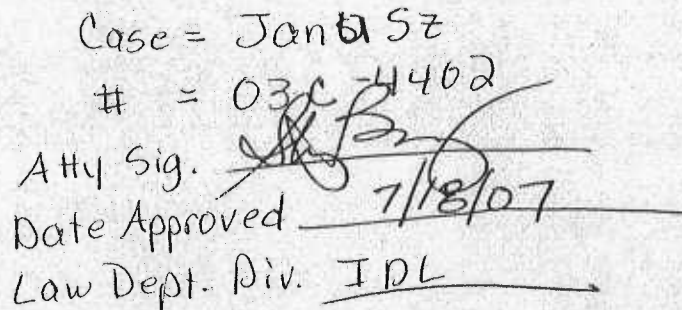 Case = Janusz
# = 03 C 4402
Atty Sig.
Date Approved 7/18/07
Law Dept. Div. IDL